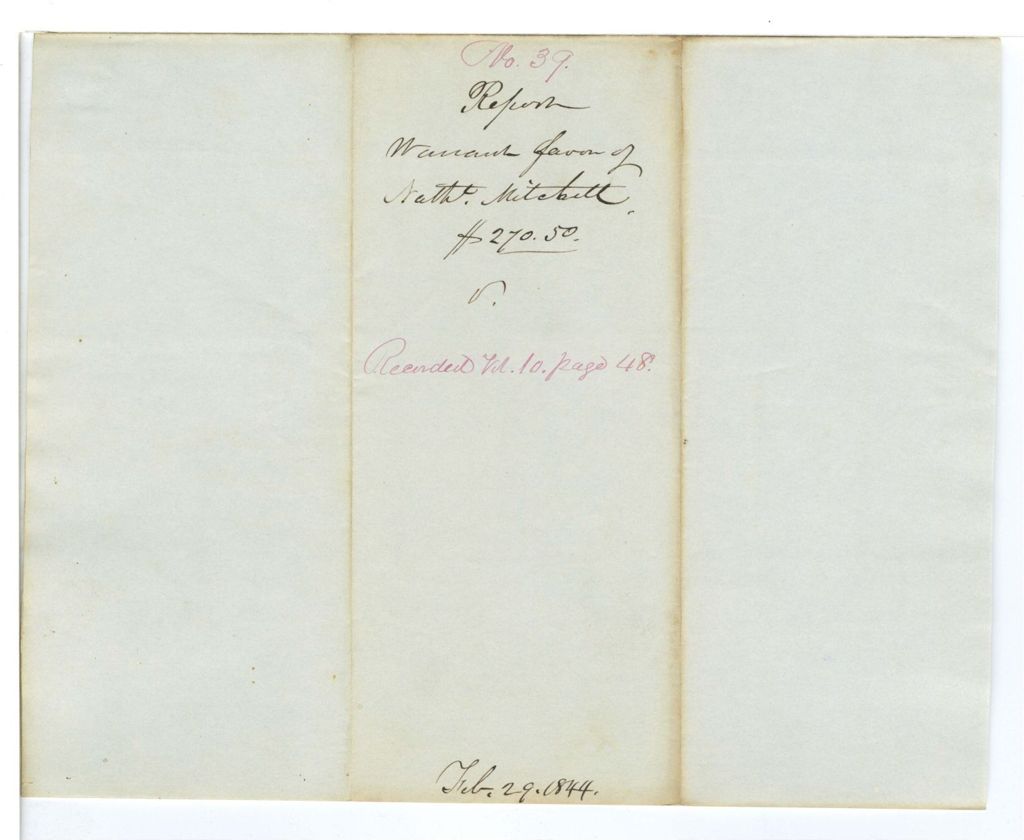 No. 39.
Report
Warrant favor of
Nathl. Mitchell,
$270.50.
Recorded Vol. 10. page 48.
Feb. 29. 1844.